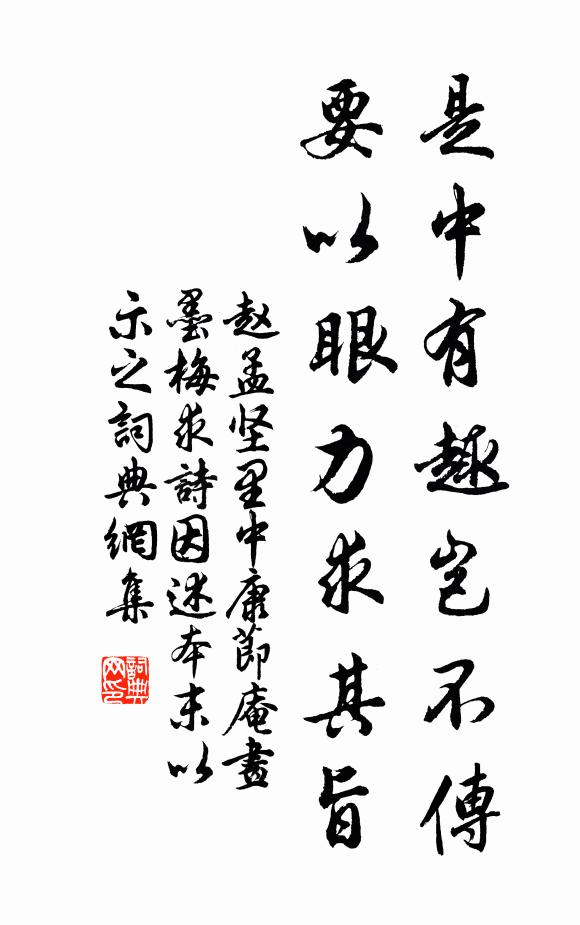 是中有趣岂不傳
要以眼力求其旨
赵孟坚里中康節庵畫
墨梅求詩因述本末以
示之詞典網集
詞典網印